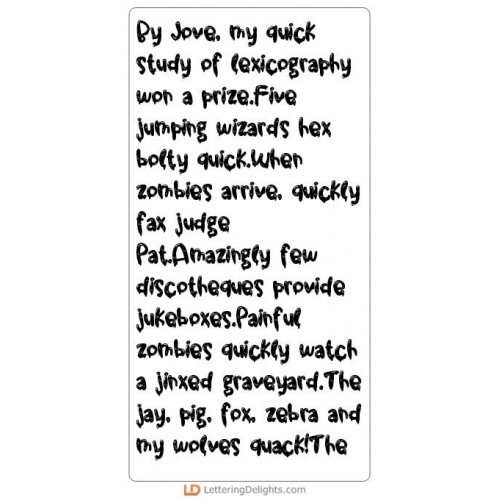 By Jove, my quick
study of lexicography
won a prize.Five
jumping wizards hex
bolty quick.When
zombies arrive, quickly
fax judge
Pat.Amazingly few
discotheques provide
jukeboxes.Painful
zombies quickly watch
a jinxed graveyard.The
jay, pig, fox, zebra and
my wolves quack!The
LD LetteringDelights.com